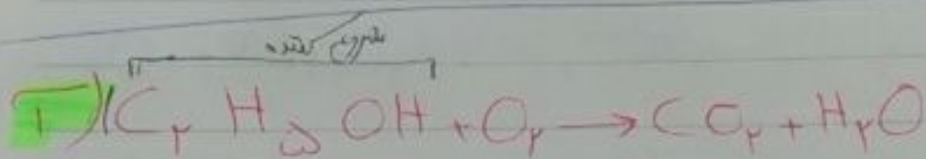 شروع کننده
۱) C۲ H۵ OH + O۲ → CO۲ + H۲O